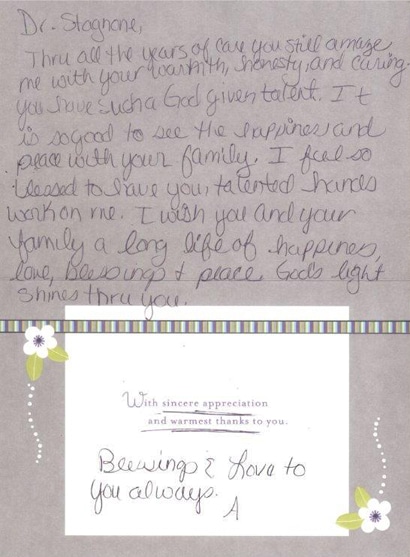 Dr. Stagnone,
Thru all the years of care you still amaze
me with your warmth, honesty, and caring.
you have such a God given talent. It
is so good to see the happiness and
peace with your family. I feel so
blessed to have your talented hands
work on me. I wish you and your
family a long life of happiness,
love, Blessings + peace God's light
shines thru you.
With sincere appreciation
and warmest thanks to you.
Blessings & Love to
you always.
A